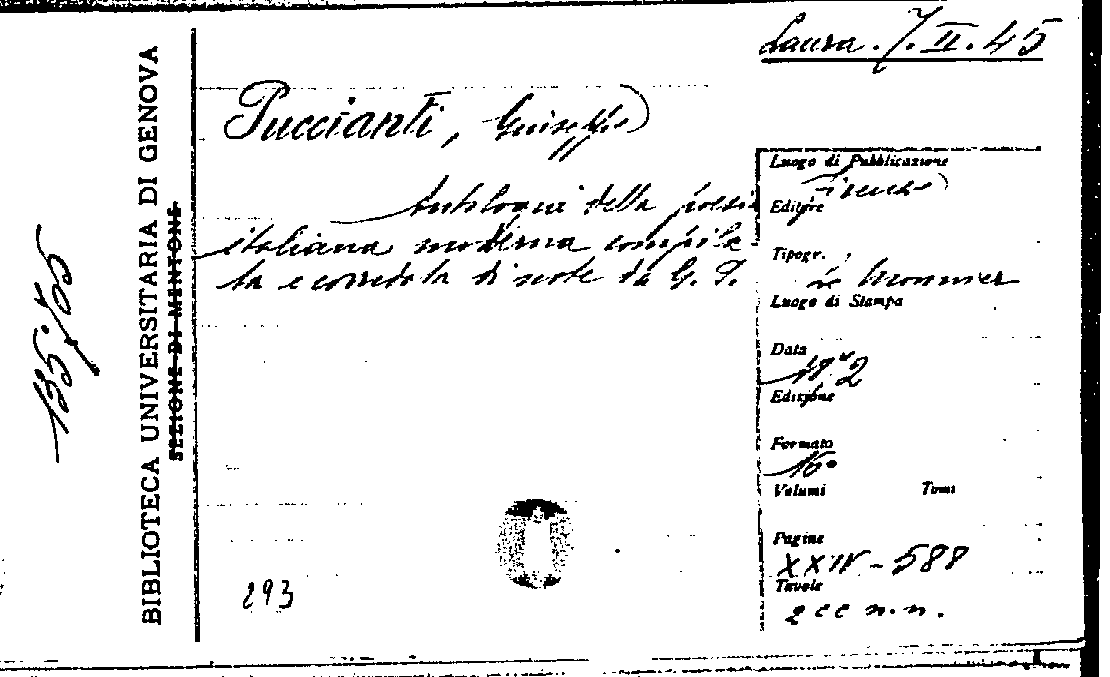 Laura. 7. II. 45
Puccianti, Giuseppe
Antologia della poesia
italiana moderna compila
ta e corredata di note da G. P.
Luogo di Pubblicazione
Firenze
Editore
Tipogr.
Le Monnier
Luogo di Stampa
Data
Edizione
Formato
16°
Volumi Tomi
Pagine
XXIV - 588
Tavole
2 cc n. n.
293
BIBLIOTECA UNIVERSITARIA DI GENOVA
SEZIONE DI MENTONE